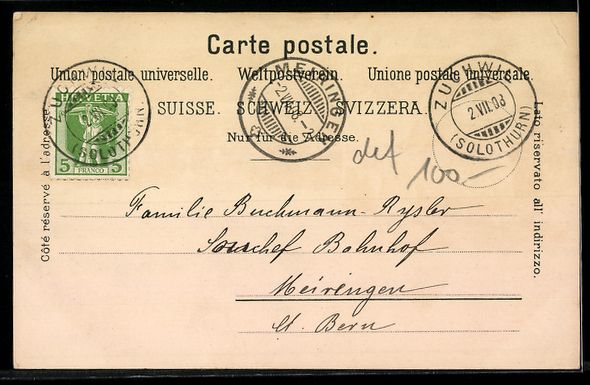 Carte postale.
Union postale universelle. Weltpostverein. Unione postale universale.
SUISSE. SCHWEIZ. SVIZZERA.
Nur für die Adresse.
Côté réservé à l'adresse.
Lato riservato all' indirizzo.
HELVETIA
5 FRANCO 5
(SOLOTHURN)
MEIRINGEN
ZUCHWIL
2.VII.08
(SOLOTHURN)
def 100.-
Familie Buchmann-Rysler
Bahnhof
Meirengen
Ct. Bern